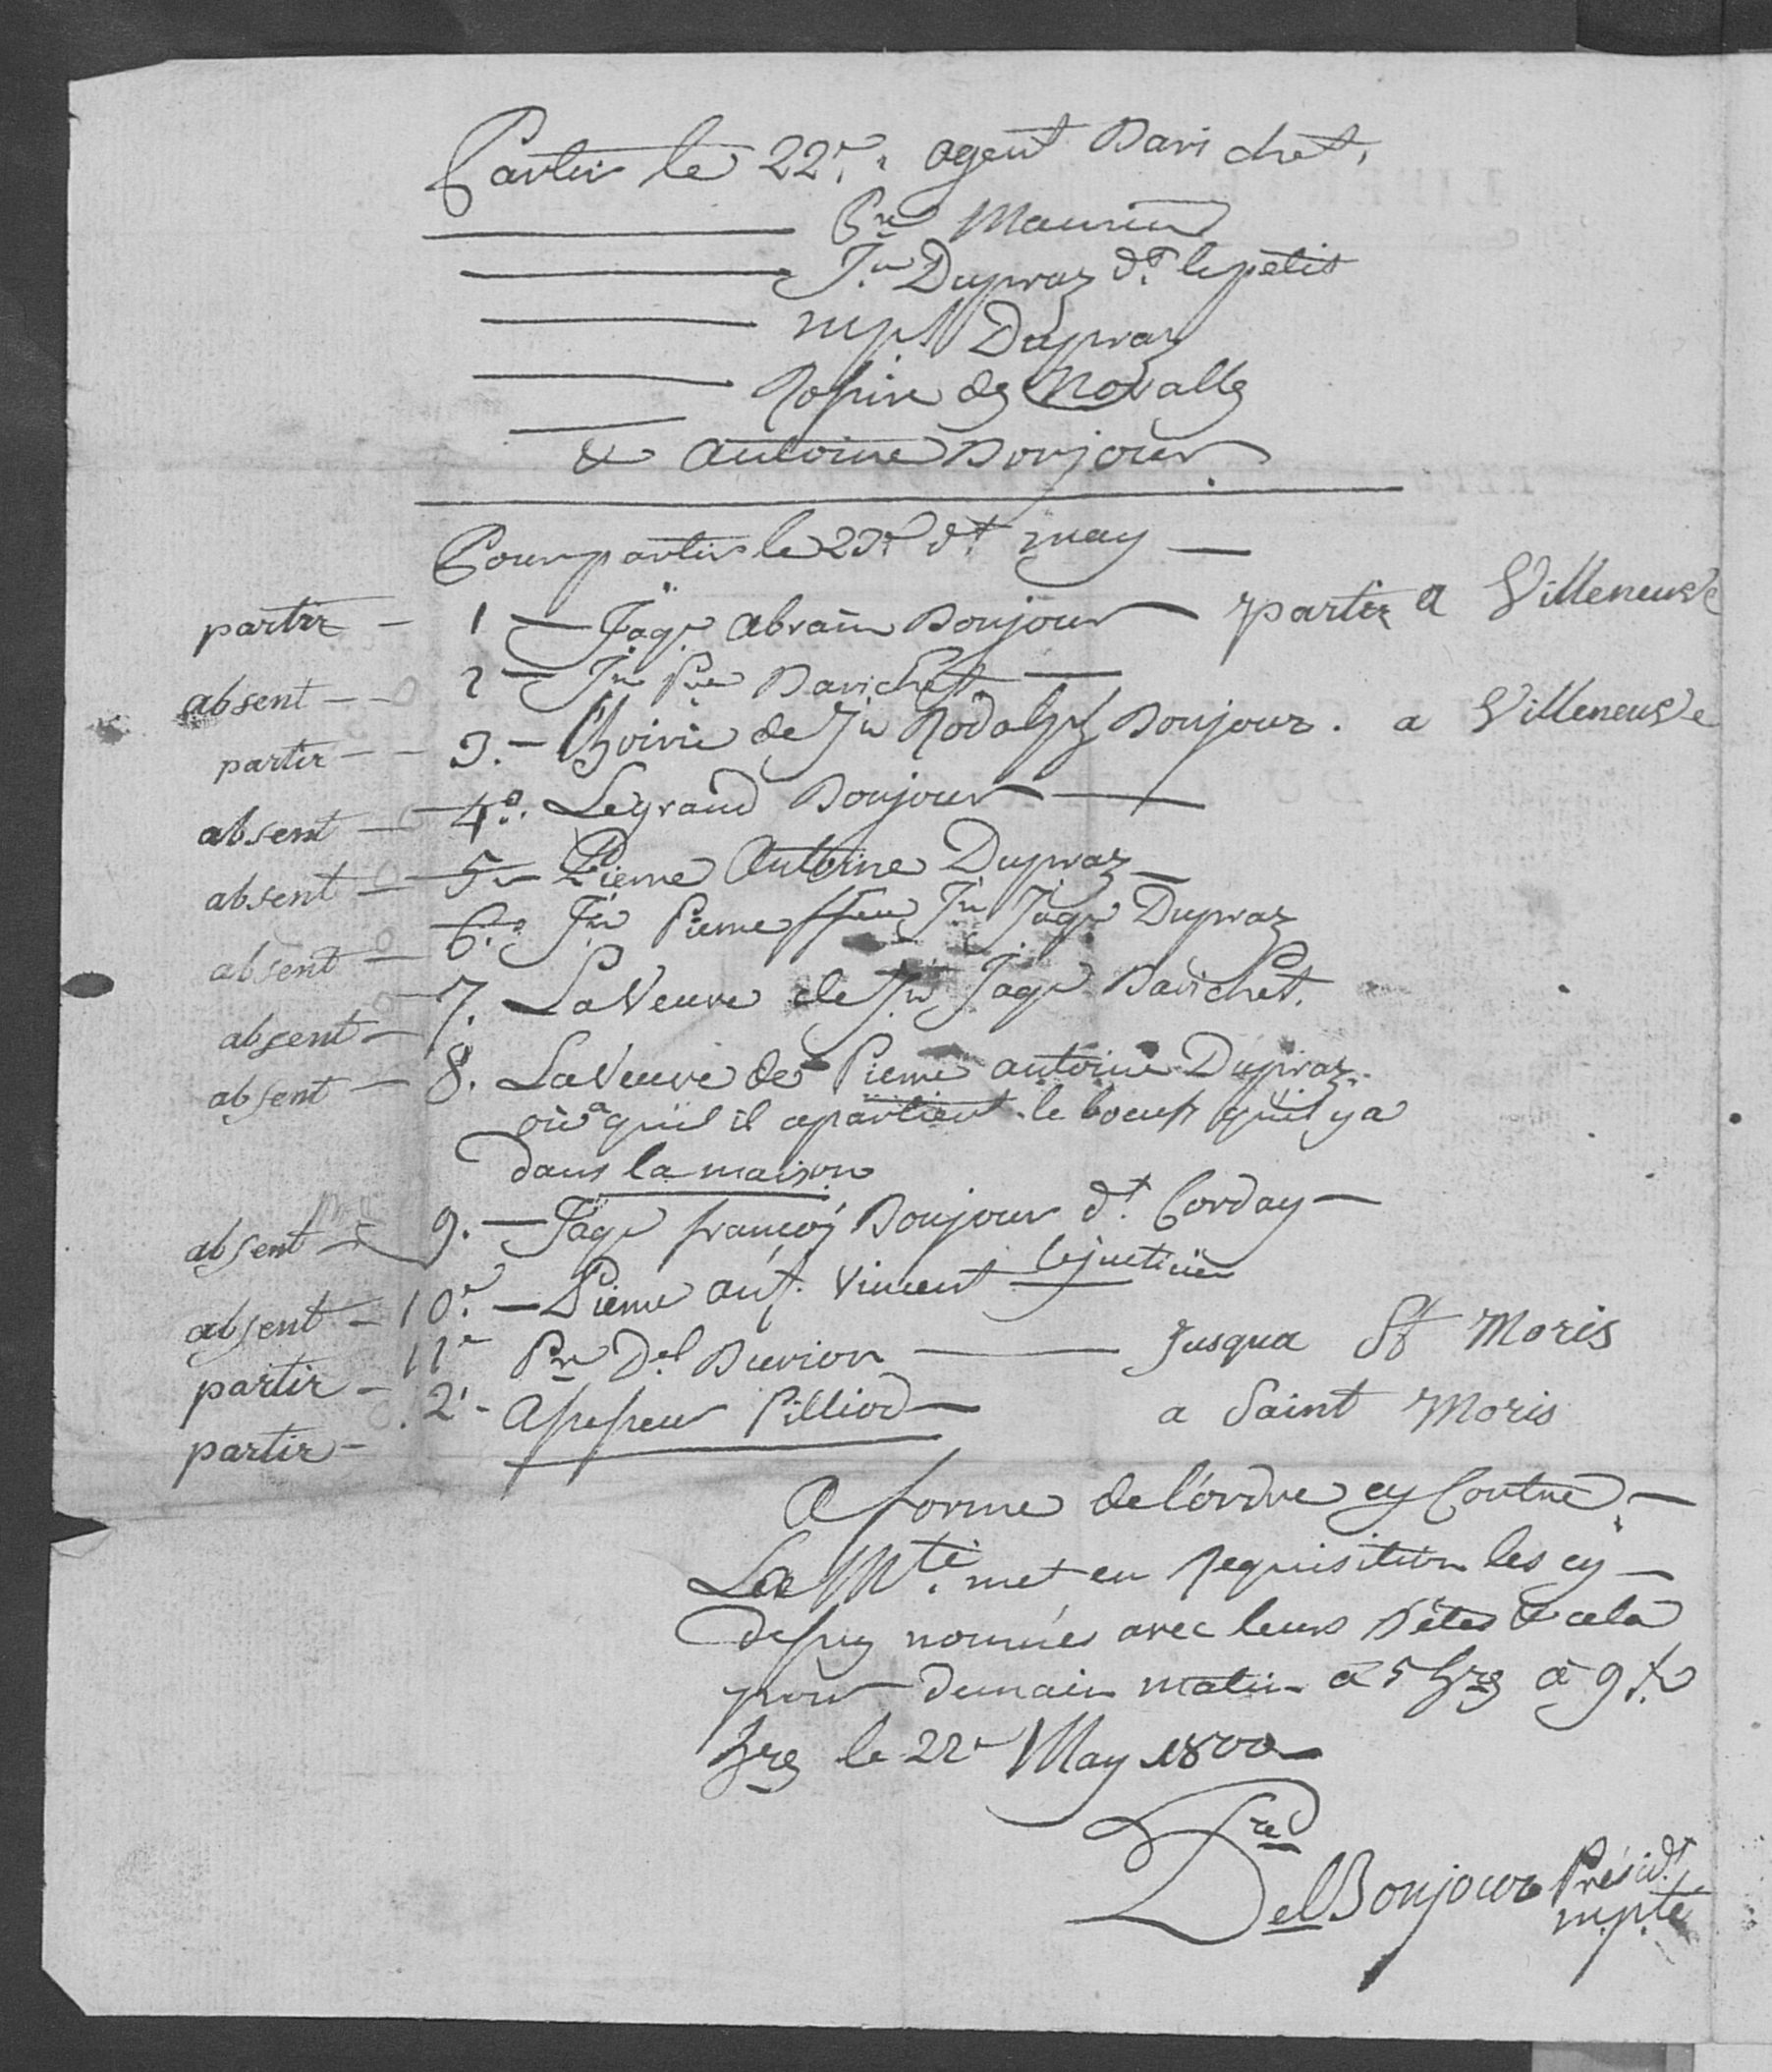 Partir le 22e. agent Barichet,
Pre Maurin
Jn Dupraz dt. le petit
Dupraz
de
& Antoine Bonjour
Pour partir le 23e dt may
partir - 1 - Jaqe Abram Bonjour - partir a Villeneuve
absent - 2 - Jn Pre Barichet
partir - 3. - L'hoirie de Jn Rodolph Bonjour. a Villeneuve
absent - 4o. Legrand Bonjour
absent - 5 - Pierre Antoine Dupraz
absent - 6. Jn Pierre ffeu Jn Jaqe Dupraz
absent - 7. La Veuve de Jn Jaqe Barichet.
absent - 8. La Veuve de Pierre antoine Dupraz.
ou a quil il apartient le boeuf qu'il ya
dans la maison
absent - 9. - Jaqe françoj Bonjour dt. Corday -
absent - 10e. - Pierre ant. Vincent
partir - 11e Pre Del Burion - Jusqua St Moris
partir - 12e - Assesseur Pilliod - a Saint Moris
A forme de l'ordre cy Contre -
La Mté. met en requisition les cy -
dessus nommés avec leurs Bêtes & cela
pour demain matin a 5 hres a 9
hres le 22e May 1800
Fred
Del Bonjour Présidt.
mpté